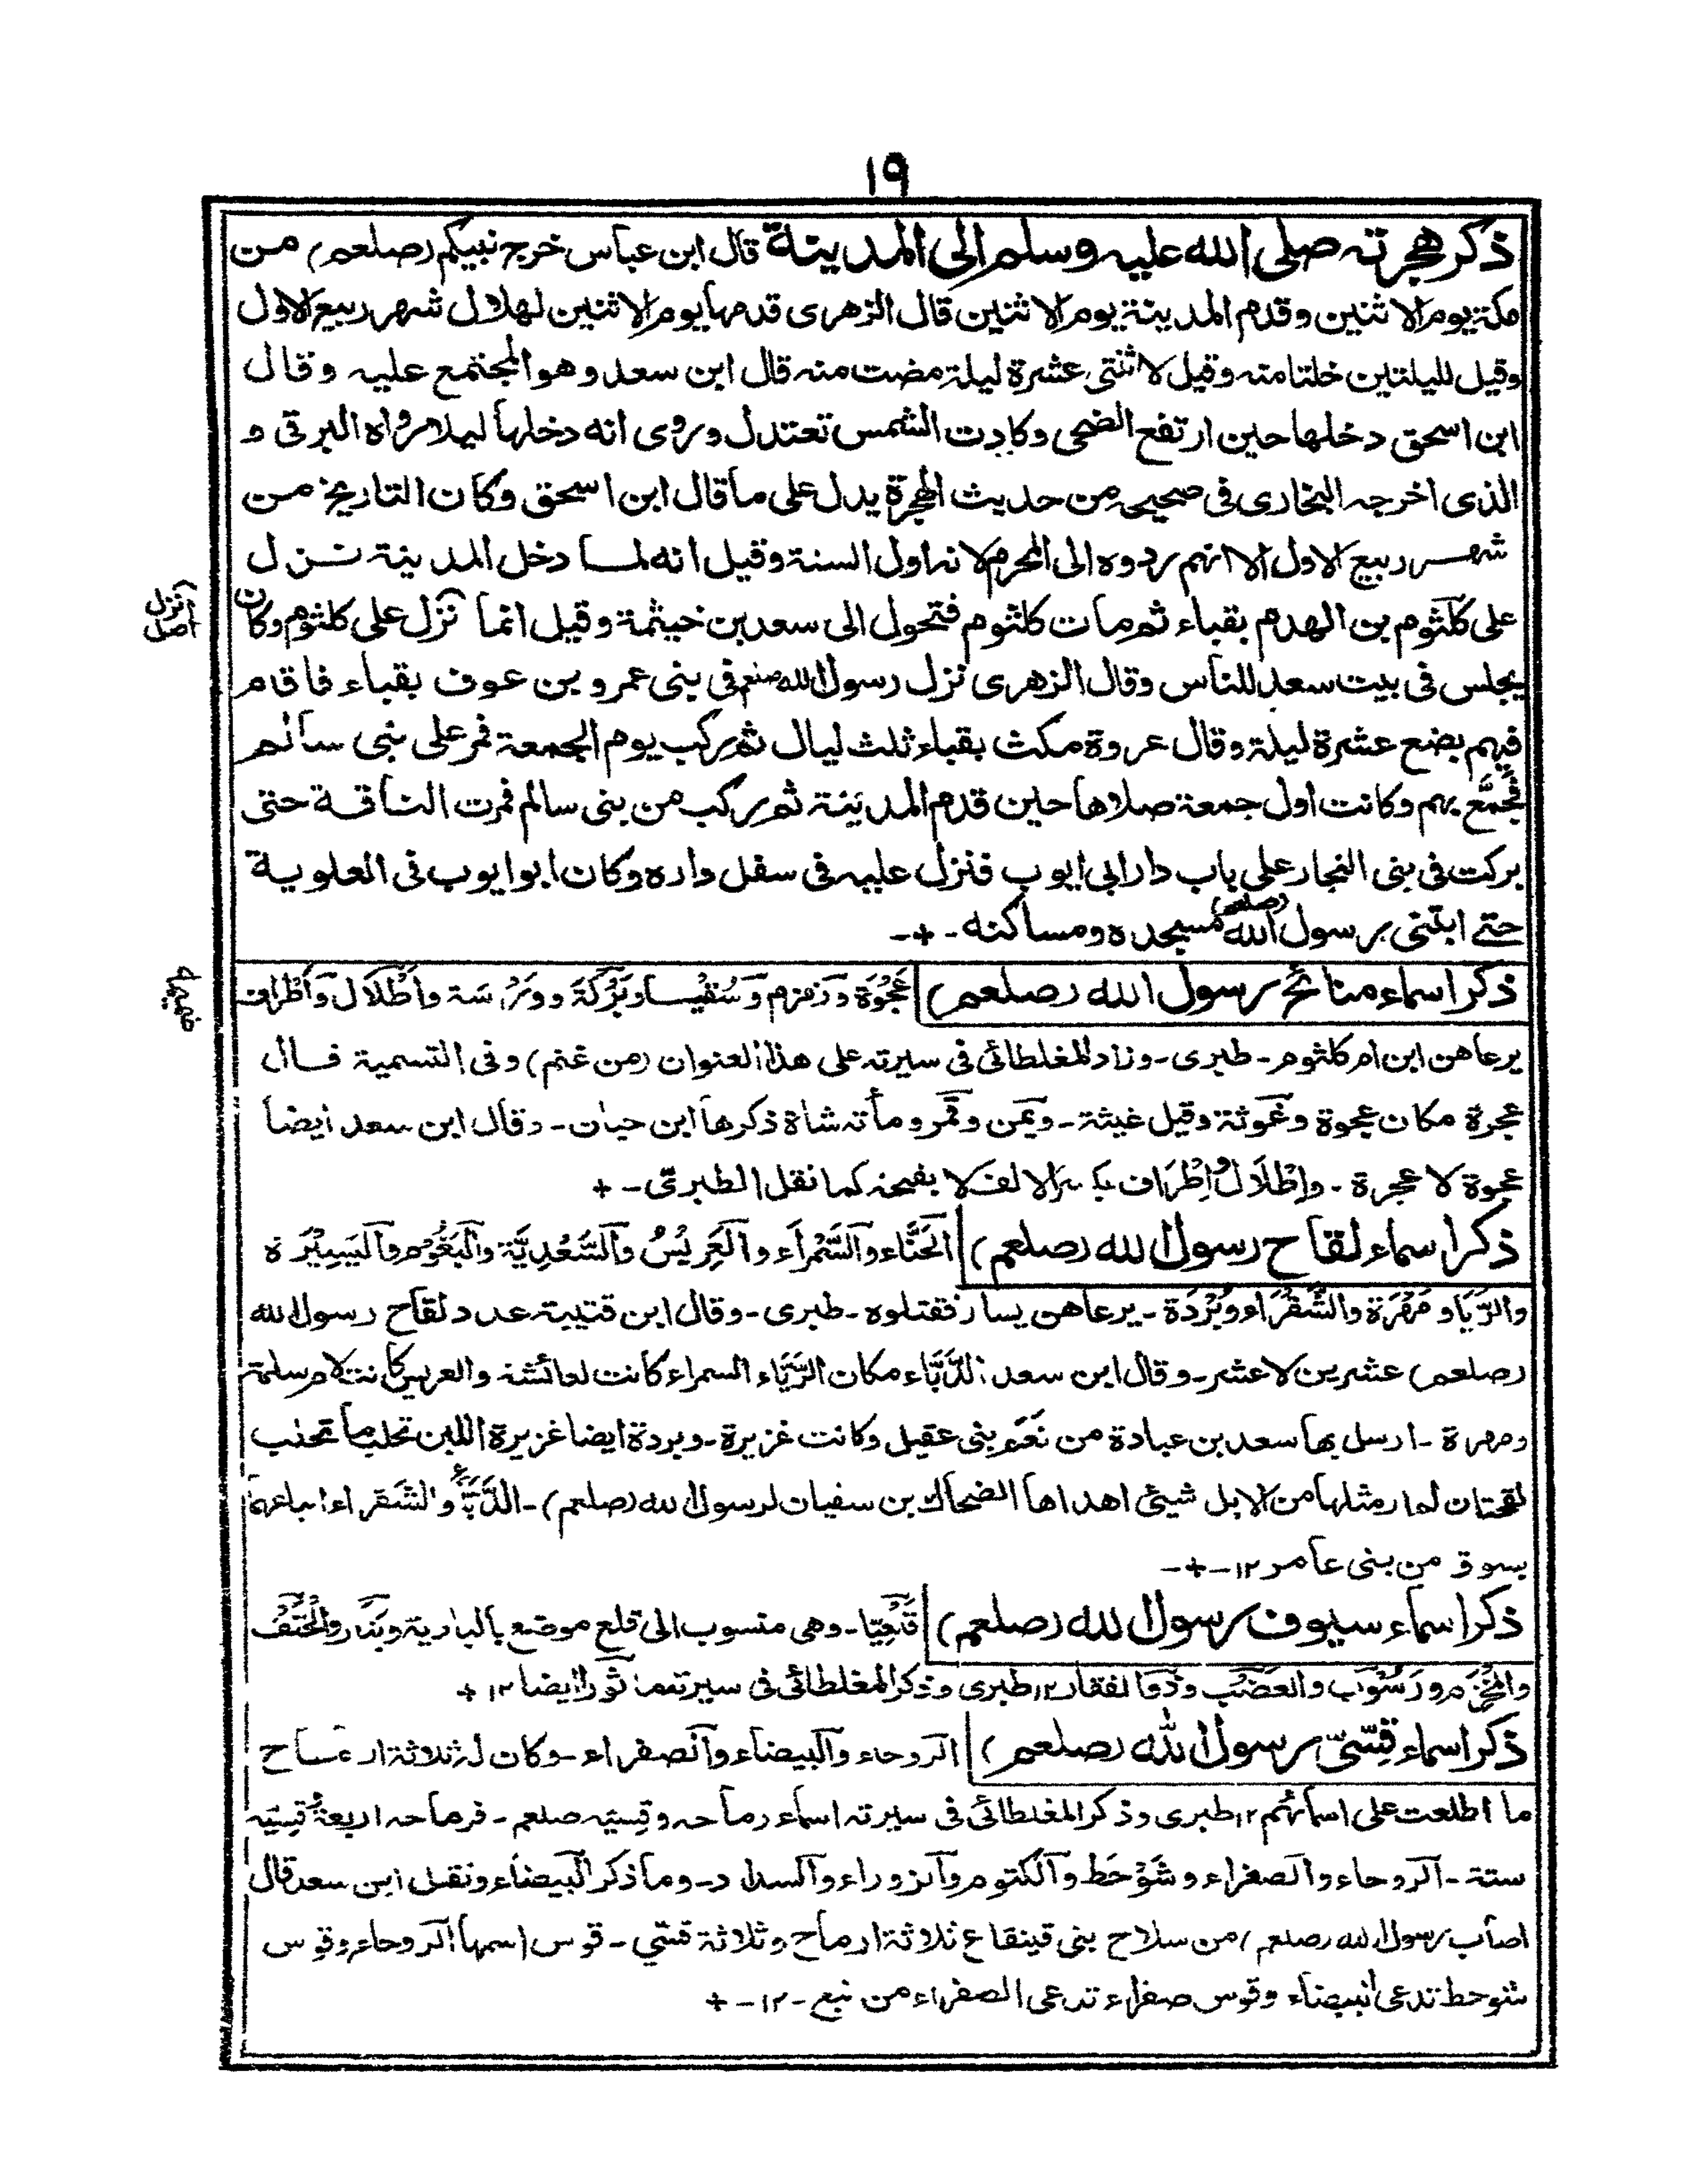 ١٩
ذكر هجرته صلى الله عليه وسلم الى المدينة قال ابن عباس خرج نبيكم (صلعم) من
مكة يوم الاثنين وقدم المدينة يوم الاثنين قال الزهرى قدمها يوم الاثنين لهلال شهر ربيع الاول
وقيل لليلتين خلتا منه وقيل لاثنتى عشرة ليلة مضت منه قال ابن سعد وهو المجتمع عليه وقال
ابن اسحق دخلها حين ارتفع الضحى وكادت الشمس تعتدل وروى انه دخلها ليلا رواه البرقى و
الذى اخرجه البخارى فى صحيحه من حديث الهجرة يدل على ما قال ابن اسحق وكان التاريخ من
شهر ربيع الاول الا انهم ردوه الى المحرم لانه اول السنة وقيل انه لما دخل المدينة نزل
على كلثوم بن الهدم بقباء ثم مات كلثوم فتحول الى سعد بن خيثمة وقيل انما نزل على كلثوم وكان
انزل
اصل
يجلس فى بيت سعد للناس وقال الزهرى نزل رسول الله صلعم فى بنى عمرو بن عوف بقباء فاقام
فيهم بضع عشرة ليلة وقال عروة مكث بقباء ثلث ليال ثم ركب يوم الجمعة فمر على بنى سالم
فجمّع بهم وكانت اول جمعة صلاها حين قدم المدينة ثم ركب من بنى سالم فمرت الناقة حتى
بركت فى بنى النجار على باب دار ابى ايوب فنزل عليه فى سفل داره وكان ابو ايوب فى العلوية
حتے ابتنى رسول الله (صلعم) مسجده ومساكنه -+-
ذكر اسماء منائح رسول الله (صلعم) عَجْوَة وزمزم وَسُقْيا وبَرْكَة وورسة وأَطْلَال وَأَطْراف
ضميمه
يرعاهن ابن ام كلثوم - طبرى - وزاد المغلطائى فى سيرته على هذا العنوان (من غنم) وفى التسمية قال
عجرة مكان عجوة وغوثة وقيل غيثة - ويمن وقمر ومأته شاة ذكرها ابن حبان - وقال ابن سعد ايضا
عجوة لا عجرة - واِطْلَال واِطْرَاف بكسر الالف لا بفتحه كما نقل الطبرىّ - +
ذكر اسماء لقاح رسول الله (صلعم) الحَنَّاء والسَّمْرَاء والعَرِيْسُ والسَّعْدِيَّة والبَغُوم واليَسِيْرَة
والرَّيَّا ومَهْرَة والشَّقْرَاء وبُرْدَة - يرعاهن يسار فقتلوه - طبرى - وقال ابن قتيبة عدد لقاح رسول الله
(صلعم) عشرين لا عشر - وقال ابن سعد الدَّبَّاء مكان الرَّيَّاء السمراء كانت لعائشة والعريس كانت لام سلمة
ومهرة - ارسل بها سعد بن عبادة من نَعَم بنى عقيل وكانت غزيرة - وبردة ايضا غزيرة اللبن تحلب ما تحلب
لقحتان لم ار مثلها من الابل شيئ اهداها الضحاك بن سفيان لرسول الله (صلعم) - الدَّبَّاءُ والشَقراء ابتاعهما
بسوق من بنى عامر ١٢ -+-
ذكر اسماء سيوف رسول الله (صلعم) قَلْعِيّا - وهى منسوب الى قلع موضع بالبادية وبَتَّار والحَتْف
والمخزم ورَسُوْب والعَضْب وذو الفقار ١٢ طبرى وذكر المغلطائى فى سيرته ماثورا ايضا ١٢ +
ذكر اسماء قِسِّىّ رسول الله (صلعم) الروحاء والبيضاء والصفراء - وكان له ثلاثة ارماح
ما اطلعت على اسمائهم ١٢ طبرى وذكر المغلطائى فى سيرته اسماء رماحه وقِسيّه صلعم - فرماحه اربعة وقِسِيّه
ستة - الروحاء والصفراء وشَوْحَط والكتوم والزوراء والسداد - وما ذكر البيضاء ونقل ابن سعد قال
اصاب رسول الله (صلعم) من سلاح بنى قينقاع ثلاثة ارماح وثلاثة قسّي - قوس اسمها الروحاء وقوس
شوحط تدعى البيضاء وقوس صفراء تدعى الصفراء من نبع - ١٢ - +